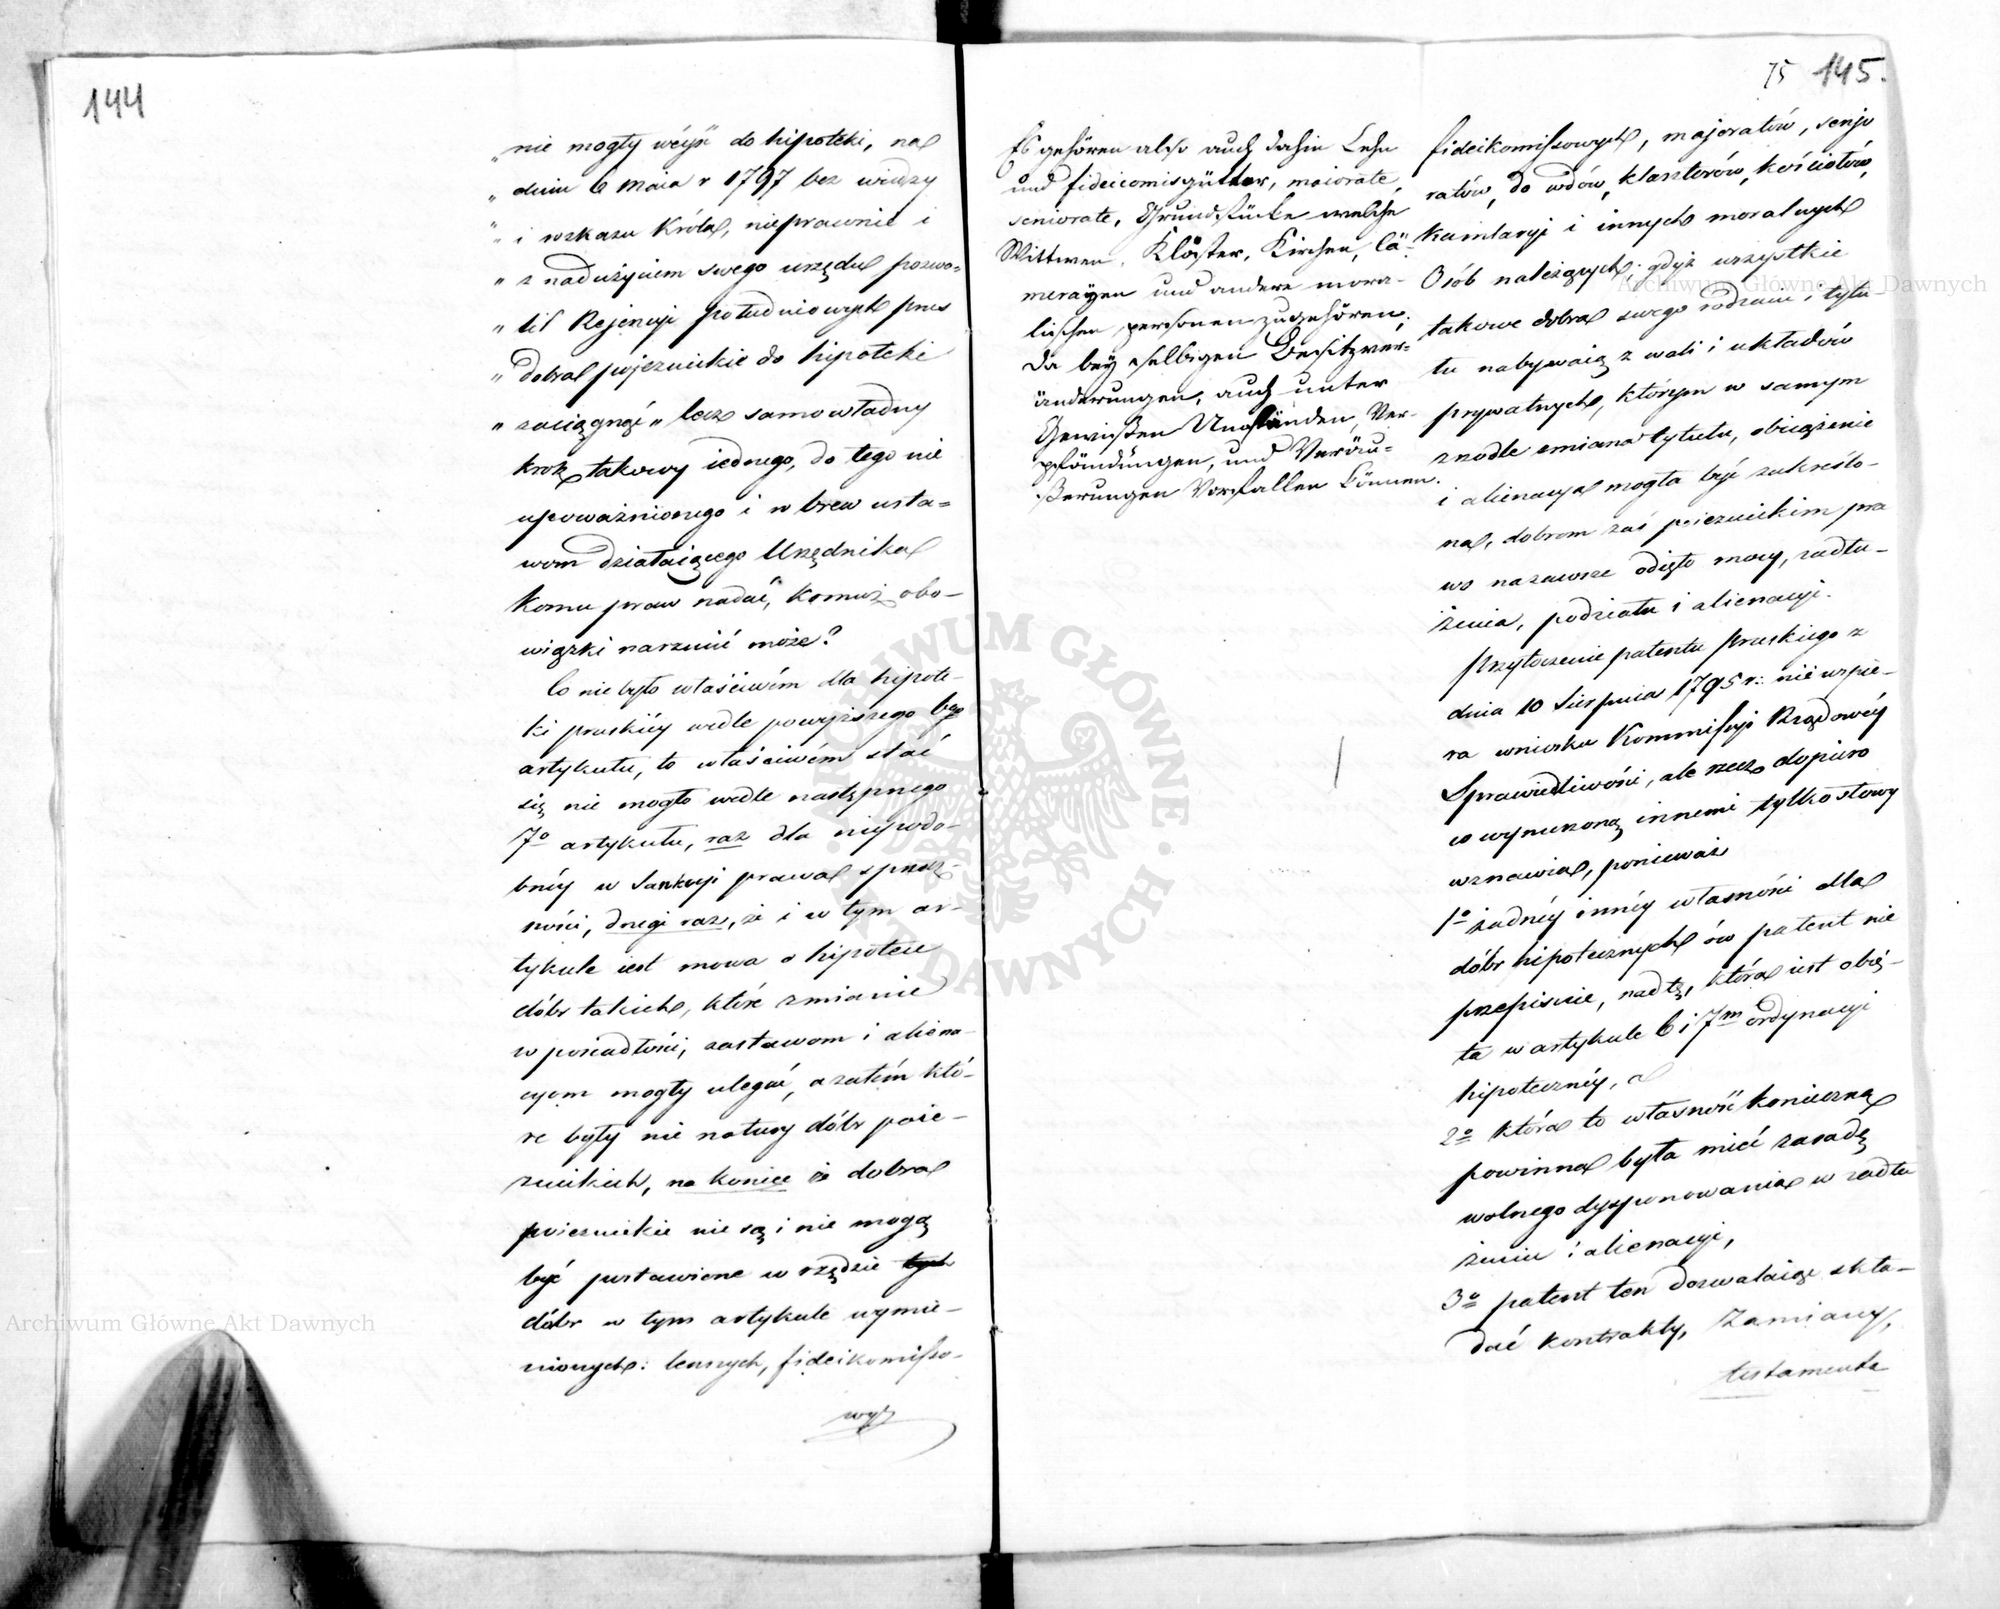 144
„ nie mogły wéyść do hipoteki, na
„ dniu 6 Maia r 1797 bez wiedzy
„ i rozkazu Króla, nieprawnie i
„ z nadużyciem swego urzędu pozwo-
„ lił Rejencyi południowych prus
„ dobra pojezuickie do hipoteki
„ zaciągnąć „ lecz samowładny
krok takowy iednego, do tego nie
upoważnionego i w brew usta-
wom działaiącego Urzędnika
komu praw nadać, komuż obo-
wiązki narzucić może?
Co nie było właściwém dla hipote-
ki pruskiéy wedle powyższego 6go
artykułu, to właściwém stać
się nie mogło wedle następnego
7o artykułu, raz dla niepodo-
bnéy w Sankcyi prawa sprzecz-
ności, drugi raz, że i w tym ar-
tykule iest mowa o hipotece
dóbr takich, które zmianie
w posiadłości, zastawom i aliena-
cyom mogły ulegać, a zatém któ-
re były nie natury dóbr poie-
zuickich, na koniec że dobra
poiezuickie nie są i nie mogą
być postawione w rzędzie tych
dóbr w tym artykule wymie-
nionych: lennych, fideikomisso-
wych
75 145.
Es gehören also auch dahin Lehn
und fideicomisgütter, maiorate,
seniorate, Grundstücke welche
Wittwen, Klöster, Kirchen, Cä-
merayen und andere mora-
lischen personen zugehören,
da bey selbigen Besitzver-
änderungen, auch unter
Gewissen Umständen, Ver-
pfändungen, und Veräu-
sserungen Vorfallen können.
fideikomissowych, majoratów, senjo
ratów, do wdów, klasztorów, kościołów,
Kamlaryi i innych moralnych
Osób należących; gdyż wszystkie
takowe dobra swego rodzaiu i tytu-
łu nabywaią z woli i układów
prywatnych, którym w samym
zrodle zmiana tytułu, obciążenie
i alienacya mogła być zakreślo-
na, dobrom zaś poiezuickim pra
wo nazawsze odięło mocy, zadłu-
żenia, podziału i alienacyi.
Przytoczenie patentu Pruskiego z
dnia 10 Sierpnia 1795 r: nie wspie-
ra wniosku Kommissyi Rządowéy
Sprawiedliwości, ale rzecz dopiero
co wynurzoną innemi tylko słowy
wznawia, ponieważ
1o żadnéy innéy własności dla
dóbr hipotecznych ów patent nie
przepisuie, nad tę, która iest obię-
ta w artykule 6 i 7m ordynacyi
hipotecznéy, a
2o która to własność konieczną
powinna była mieć zasadę
wolnego dysponowania w zadłu
żeniu i alienacyi,
3o patent ten dozwalaiąc skła-
dać kontrakty, Zamiany,
testamenta
Archiwum Główne Akt Dawnych
Archiwum Główne Akt Dawnych
ARCHIWUM GŁÓWNE AKT DAWNYCH